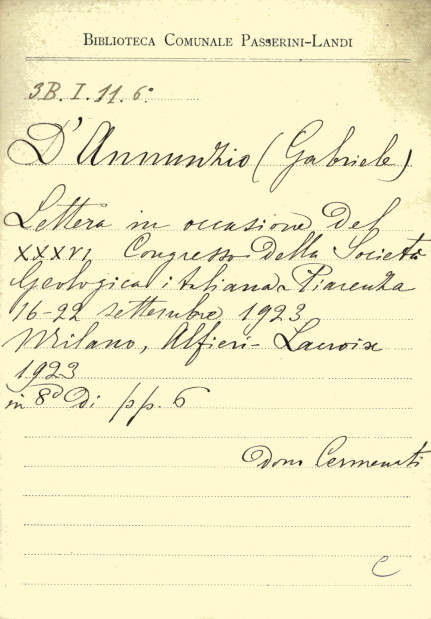 BIBLIOTECA COMUNALE PASSERINI-LANDI
3B. I. 11. 6º
D'Annunzio (Gabriele)
Lettera in occasione del
XXXVI Congresso della Società
Geologica italiana Piacenza
16-22 settembre 1923
Milano, Alfieri-Lacroix
1923
in 8º di pp. 6
Dono Cermenati
C